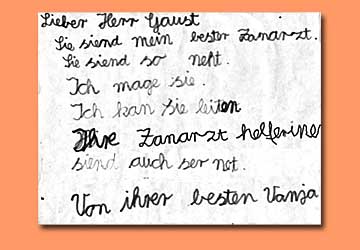 Lieber Herr Gaust
Sie siend mein bester Zanarzt.
Sie siend so neht.
Ich mage sie.
Ich kan Sie leiten
Ihre Zanarzt helferinen
siend auch ser net.
Von ihrer besten Vanja